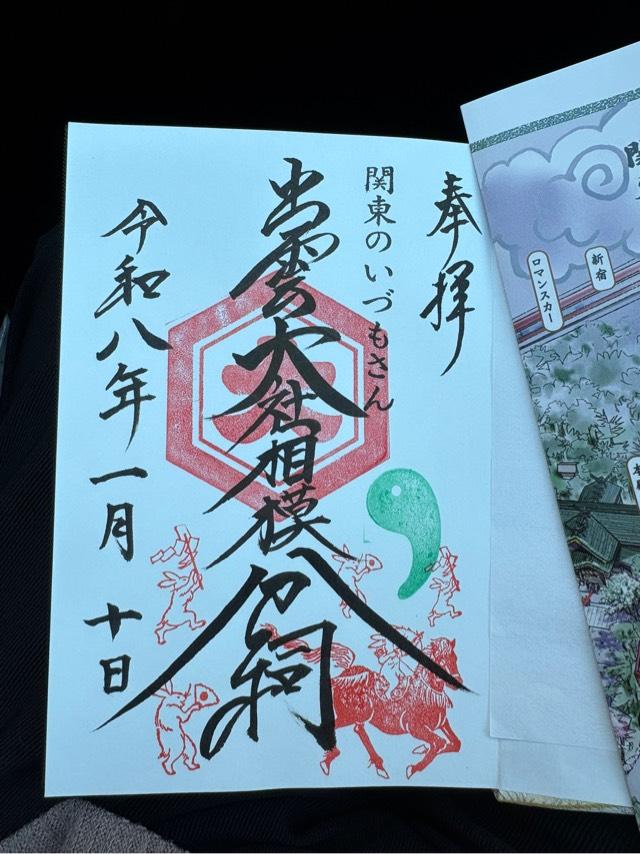 奉拝
関東のいづもさん
出雲大社相模分祠
令和八年一月十日
新宿
ロマンスカー